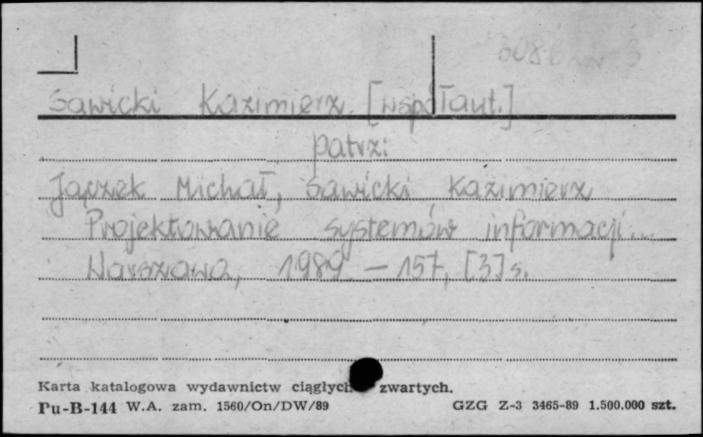 Sawicki Kazimierz [współaut.]
patrz:
Jączek Michał, Sawicki Kazimierz
Projektowanie systemów informacji...
Warszawa, 1989 - 157, [3] s.
Karta katalogowa wydawnictw ciągłych zwartych.
Pu-B-144 W.A. zam. 1560/On/DW/89 GZG Z-3 3465-89 1.500.000 szt.